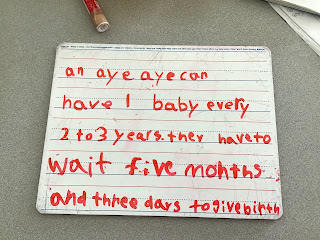 an aye aye can
have 1 baby every
2 to 3 years. they have to
wait five months
and three dars to give birth